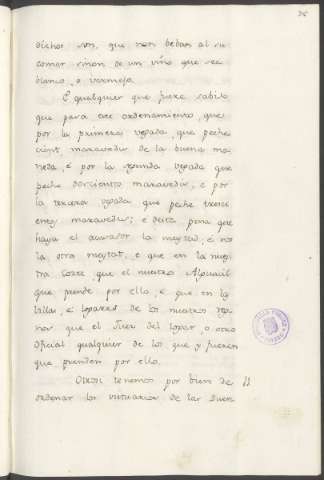 dichos son, que non deban al su
comer sinon de un vino que sea
blanco, o vermejo.
E qualquier que fuere sabido
que para este ordenamiento, que
por la primera vegada, que peche
cient maravedis de la buena mo
neda, e por la segunda vegada que
peche doscientos maravedis, e por
la tercera vegada que peche trescі
entos maravedis; e desta pena que
haya el acusador la meytad, e nos
la otra meytat, e que en la nues
tra corte que el nuestro Alguacil
que prende por ello, e que en las
Villas, e logares de los nuestros reg
nos que el Juez del logar, o otro
oficial qualquier de los que y fueren
que prenden por ello.
Otrosi tenemos por bien de 11
ordenar las vistuarias de las Duen